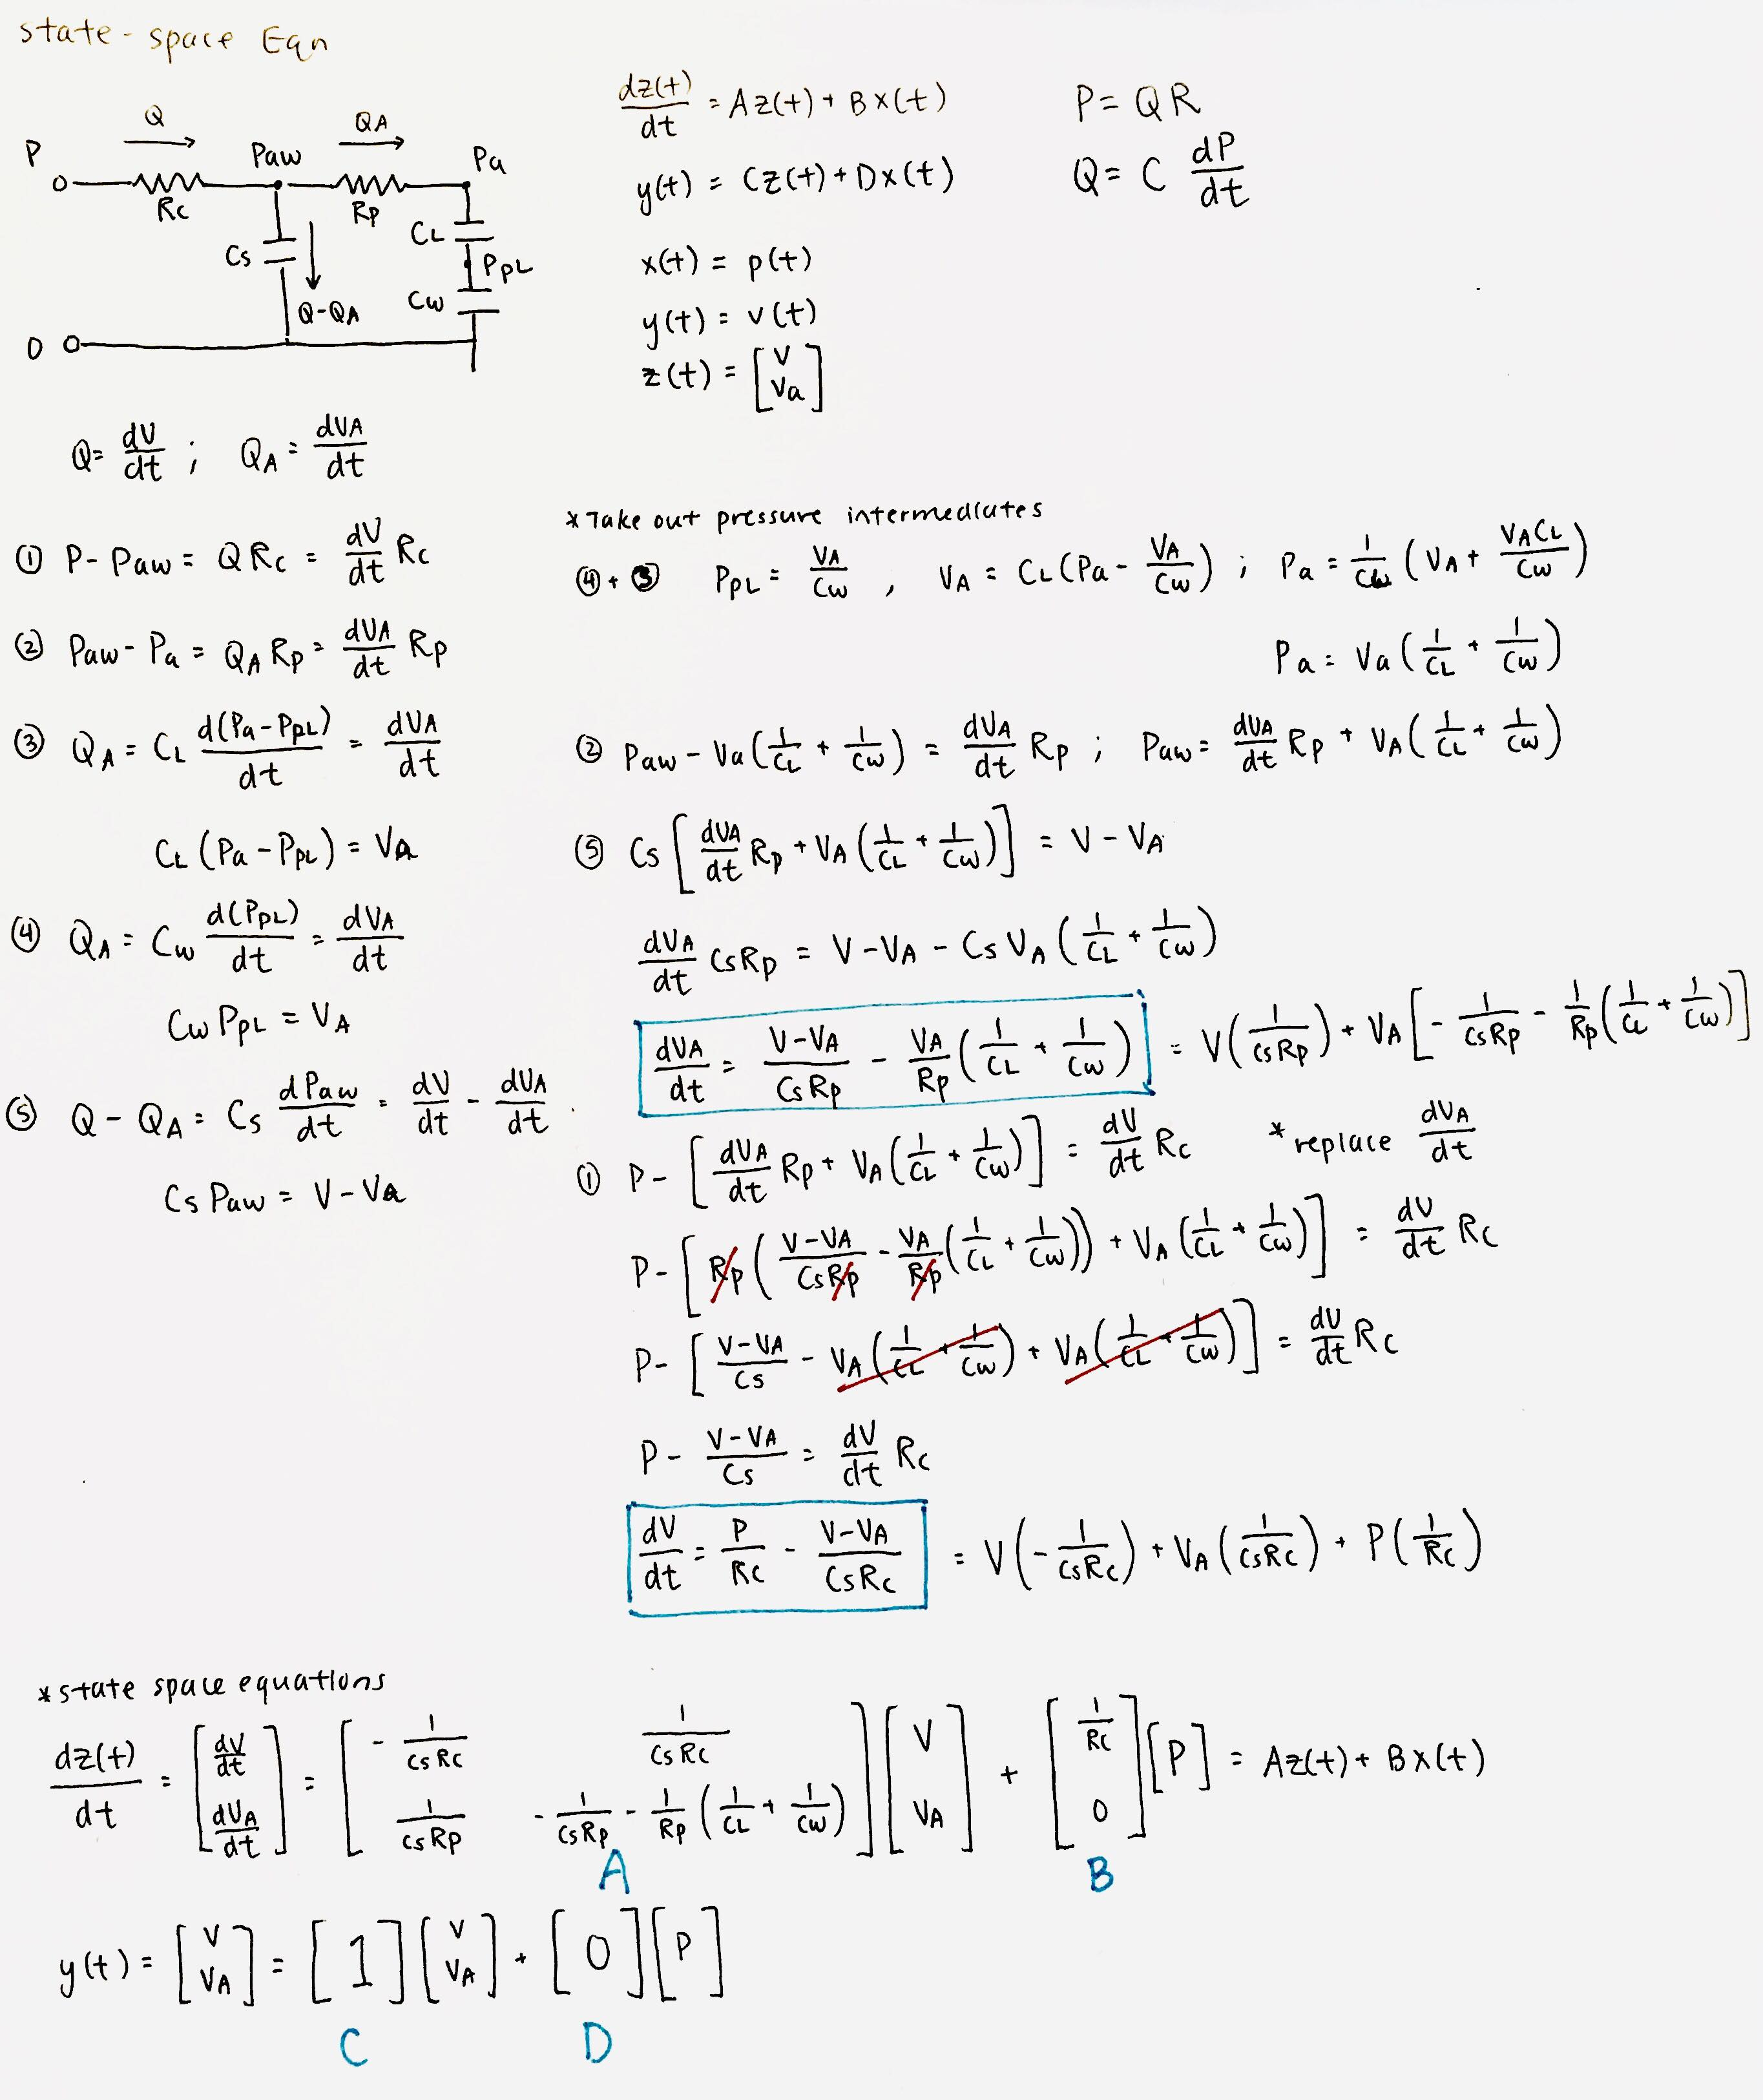 state-space Eqn
dz(t)/dt = Az(t) + Bx(t)
y(t) = Cz(t) + Dx(t)
x(t) = p(t)
y(t) = v(t)
z(t) = [V Va]
P = QR
Q = C dP/dt
P Q Paw QA Pa
Rc Rp
Cs CL PPL
Q-QA Cw
0
Q = dV/dt ; QA = dVA/dt
① P - Paw = QRc = dV/dt Rc
② Paw - Pa = QA Rp = dVA/dt Rp
③ QA = CL d(Pa-PPL)/dt = dVA/dt
CL (Pa - PPL) = VA
④ QA = Cw d(PPL)/dt = dVA/dt
Cw PPL = VA
⑤ Q - QA = Cs dPaw/dt = dV/dt - dVA/dt
Cs Paw = V - VA
*Take out pressure intermediates
④ + ③ PPL = VA/Cw , VA = CL(Pa - VA/Cw) ; Pa = 1/CL (VA + VACL/Cw)
Pa = Va(1/CL + 1/Cw)
② Paw - Va(1/CL + 1/Cw) = dVA/dt Rp ; Paw = dVA/dt Rp + VA(1/CL + 1/Cw)
⑤ Cs [dVA/dt Rp + VA(1/CL + 1/Cw)] = V - VA
dVA/dt CsRp = V - VA - Cs VA (1/CL + 1/Cw)
dVA/dt = V-VA/CsRp - VA/Rp (1/CL + 1/Cw) = V(1/CsRp) + VA[-1/CsRp - 1/Rp(1/CL + 1/Cw)]
① P - [dVA/dt Rp + VA(1/CL + 1/Cw)] = dV/dt Rc *replace dVA/dt
P - [Rp(V-VA/CsRp - VA/Rp(1/CL + 1/Cw)) + VA(1/CL + 1/Cw)] = dV/dt Rc
P - [V-VA/Cs - VA(1/CL + 1/Cw) + VA(1/CL + 1/Cw)] = dV/dt Rc
P - V-VA/Cs = dV/dt Rc
dV/dt = P/Rc - V-VA/CsRc = V(-1/CsRc) + VA(1/CsRc) + P(1/Rc)
*state space equations
dz(t)/dt = [dV/dt dVA/dt] = [-1/CsRc 1/CsRc 1/CsRp -1/CsRp - 1/Rp(1/CL + 1/Cw)] [V VA] + [1/Rc 0] [P] = Az(t) + Bx(t)
A B
y(t) = [V VA] = [1] [V VA] + [0] [P]
C D